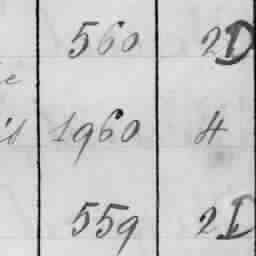 560 2D
1960 4
559 2D